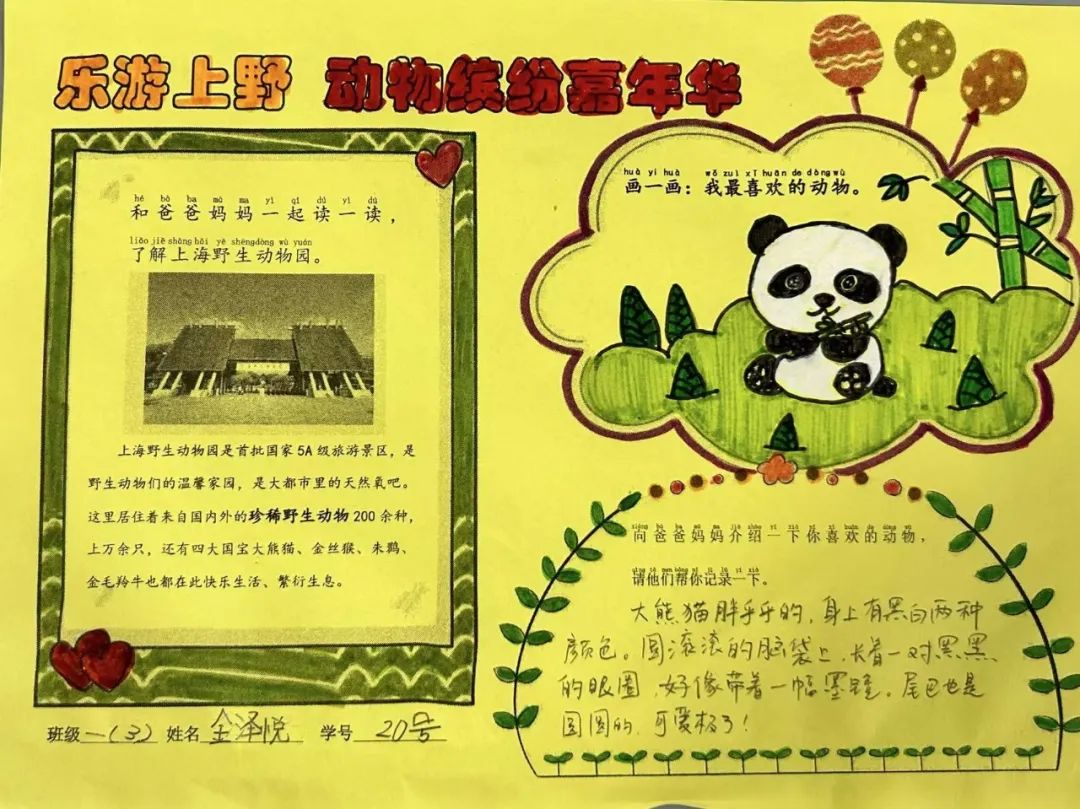 乐游上野 动物缤纷嘉年华
hé bà ba mā ma yì qǐ dú yì dú
和爸爸妈妈一起读一读，
liǎo jiě shàng hǎi yě shēng dòng wù yuán
了解上海野生动物园。
上海野生动物园是首批国家5A级旅游景区，是
野生动物们的温馨家园，是大都市里的天然氧吧。
这里居住着来自国内外的珍稀野生动物200余种，
上万余只，还有四大国宝大熊猫、金丝猴、朱鹮、
金毛羚牛也都在此快乐生活、繁衍生息。
班级一（3） 姓名 金泽悦 学号 20号
huà yi huà wǒ zuì xǐ huān de dòng wù
画一画：我最喜欢的动物。
向爸爸妈妈介绍一下你喜欢的动物，
请他们帮你记录一下。
大熊猫胖乎乎的，身上有黑白两种
颜色。圆滚滚的脑袋上，长着一对黑黑
的眼圈，好像带着一幅墨镜。尾巴也是
圆圆的，可爱极了！